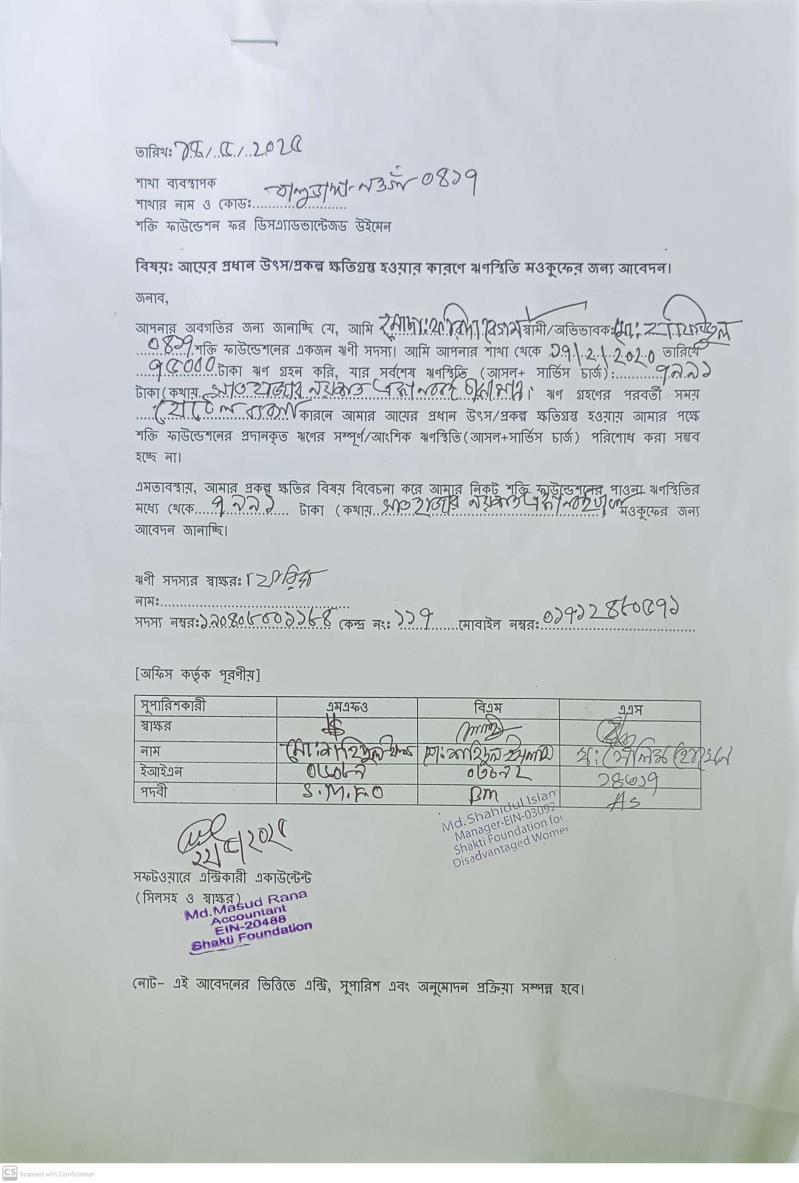 তারিখ: /৫/২০২৫
শাখা ব্যবস্থাপক
শাখার নাম ও কোড: ০৪১৭
শক্তি ফাউন্ডেশন ফর ডিসএ্যাডভান্টেজড উইমেন
বিষয়: আয়ের প্রধান উৎস/প্রকল্প ক্ষতিগ্রস্ত হওয়ার কারণে ঋণস্থিতি মওকুফের জন্য আবেদন।
জনাব,
আপনার অবগতির জন্য জানাচ্ছি যে, আমি বেগম স্বামী/অভিভাবক:
শক্তি ফাউন্ডেশনের একজন ঋণী সদস্য। আমি আপনার শাখা থেকে তারিখে
৭৫০০০ টাকা ঋণ গ্রহন করি, যার সর্বশেষ ঋণস্থিতি (আসল+ সার্ভিস চার্জ): ৭৯৯১
টাকা(কথায় সাত হাজার নয়শত একানব্বই টাকা মাত্র। ঋণ গ্রহণের পরবর্তী সময়
কারনে আমার আয়ের প্রধান উৎস/প্রকল্প ক্ষতিগ্রস্ত হওয়ায় আমার পক্ষে
শক্তি ফাউন্ডেশনের প্রদানকৃত ঋণের সম্পূর্ণ/আংশিক ঋণস্থিতি(আসল+সার্ভিস চার্জ) পরিশোধ করা সম্ভব
হচ্ছে না।
এমতাবস্থায়, আমার প্রকল্প ক্ষতির বিষয় বিবেচনা করে আমার নিকট শক্তি ফাউন্ডেশনের পাওনা ঋণস্থিতির
মধ্যে থেকে ৭৯৯১ টাকা (কথায় সাত হাজার নয়শত মওকুফের জন্য
আবেদন জানাচ্ছি।
ঋণী সদস্যর স্বাক্ষর:
নাম:
সদস্য নম্বর: কেন্দ্র নং: ১১৭ মোবাইল নম্বর:
[অফিস কর্তৃক পূরণীয়]
সুপারিশকারী এমএফও বিএম এএস
স্বাক্ষর
নাম মো: মো: শাহিদুল ইসলাম মো:
ইআইএন
পদবী S.M.F.O BM AS
Md.Shahidul Islam
Manager-EIN-03092
Shakti Foundation for
Disadvantaged Women
২২/৫/২০২৫
সফটওয়ারে এন্ট্রিকারী একাউন্টেন্ট
(সিলসহ ও স্বাক্ষর)
Md.Masud Rana
Accountant
EIN-20488
Shakti Foundation
নোট- এই আবেদনের ভিত্তিতে এন্ট্রি, সুপারিশ এবং অনুমোদন প্রক্রিয়া সম্পন্ন হবে।
CS Scanned with CamScanner